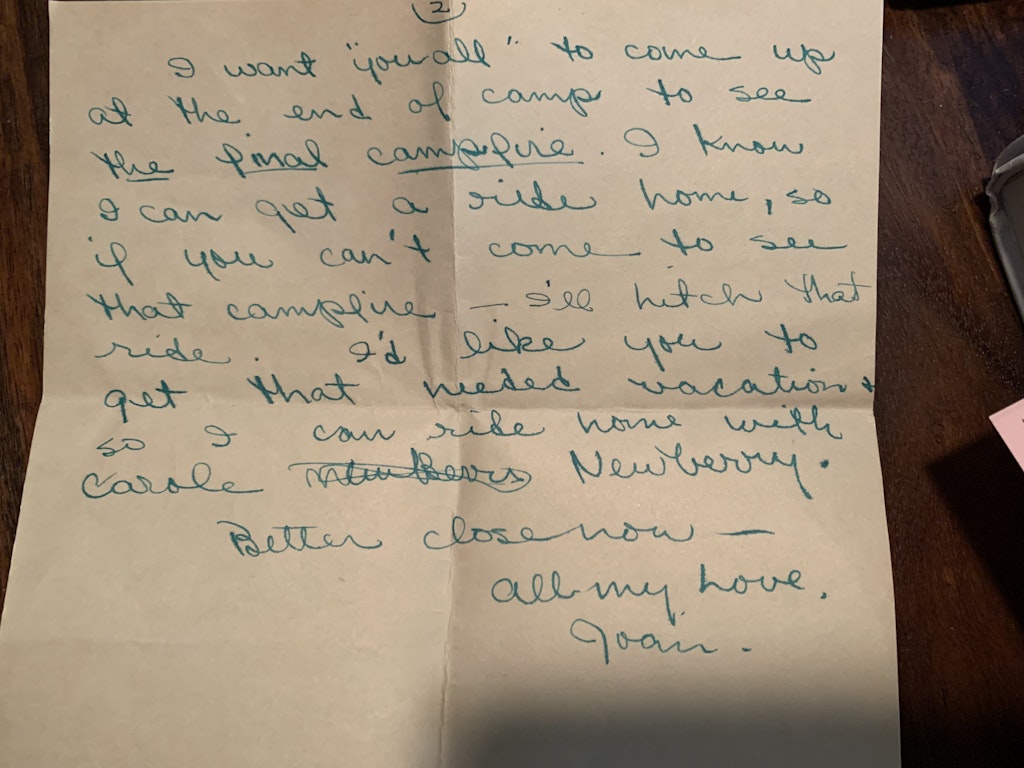 2
I want "you all" to come up
at the end of camp to see
the final campfire. I know
I can get a ride home, so
if you can't come to see
that campfire — I'll hitch that
ride. I'd like you to
get that needed vacation &
so I can ride home with
Carole Newberry.
Better close now —
all my love,
Joan.